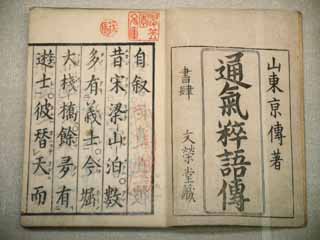 山東京傳著
通氣粹語傳
書肆 文榮堂藏
自叙
昔宋梁山泊數
多有義士。今堀
大棧橋餘夛有
遊士。彼替天而